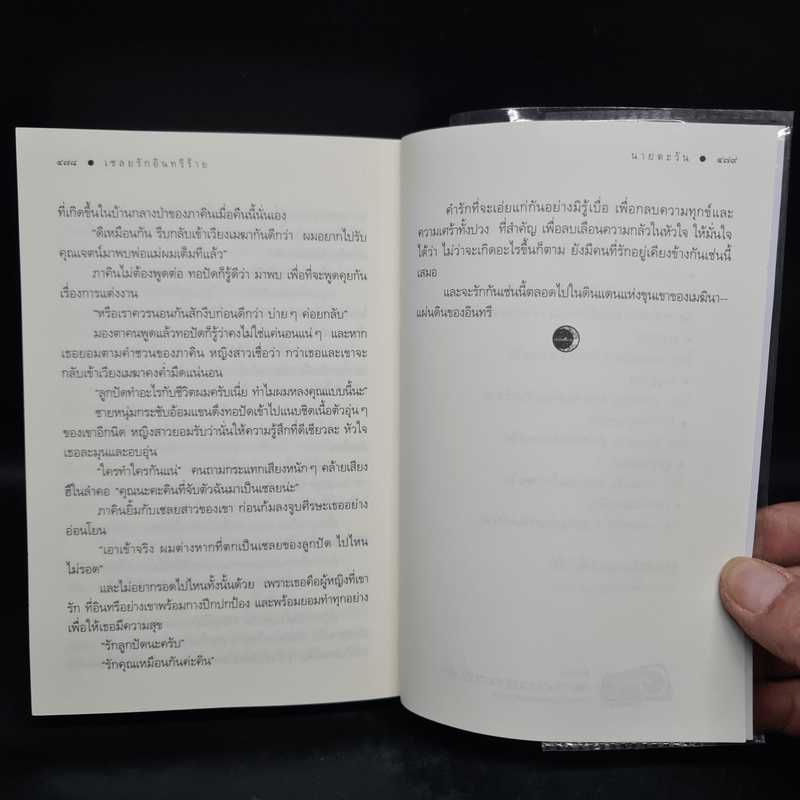 ๔๗๘ ● เชลยรักอินทรีร้าย
ที่เกิดขึ้นในบ้านกลางป่าของภาคินเมื่อคืนนี้นั่นเอง
“ดีเหมือนกัน รีบกลับเข้าเวียงเมฆากันดีกว่า ผมอยากไปรับ
คุณเจตน์มาพบพ่อแม่ผมเต็มทีแล้ว”
ภาคินไม่ต้องพูดต่อ ทอปัดก็รู้ดีว่า มาพบ เพื่อที่จะพูดคุยกัน
เรื่องการแต่งงาน
“หรือเราควรนอนกันสักงีบก่อนดีกว่า บ่ายๆ ค่อยกลับ”
มองตาคนพูดแล้วทอปัดก็รู้ว่าคงไม่ใช่แค่นอนแน่ๆ และหาก
เธอยอมตามคำชวนของภาคิน หญิงสาวเชื่อว่า กว่าเธอและเขาจะ
กลับเข้าเวียงเมฆาคงค่ำมืดแน่นอน
“ลูกปัดทำอะไรกับชีวิตผมครับเนี่ย ทำไมผมหลงคุณแบบนี้นะ”
ชายหนุ่มกระชับอ้อมแขนดึงทอปัดเข้าไปแนบชิดเนื้อตัวอุ่นๆ
ของเขาอีกนิด หญิงสาวยอมรับว่านั่นให้ความรู้สึกที่ดีเชียวละ หัวใจ
เธอละมุนและอบอุ่น
“ใครทำใครกันแน่” คนถามกระแทกเสียงหนักๆ คล้ายเสียง
ฮึในลำคอ “คุณนะคะคินที่จับตัวฉันมาเป็นเชลยน่ะ”
ภาคินยิ้มกับเชลยสาวของเขา ก่อนก้มลงจูบศีรษะเธออย่าง
อ่อนโยน
“เอาเข้าจริง ผมต่างหากที่ตกเป็นเชลยของลูกปัด ไปไหน
ไม่รอด”
และไม่อยากรอดไปไหนทั้งนั้นด้วย เพราะเธอคือผู้หญิงที่เขา
รัก ที่อินทรีอย่างเขาพร้อมกางปีกปกป้อง และพร้อมยอมทำทุกอย่าง
เพื่อให้เธอมีความสุข
“รักลูกปัดนะครับ”
“รักคุณเหมือนกันค่ะคิน”
นายตะวัน ● ๔๗๙
คำรักที่จะเอ่ยแก่กันอย่างมิรู้เบื่อ เพื่อกลบความทุกข์และ
ความเศร้าทั้งปวง ที่สำคัญ เพื่อลบเลือนความกลัวในหัวใจ ให้มั่นใจ
ได้ว่า ไม่ว่าจะเกิดอะไรขึ้นก็ตาม ยังมีคนที่รักอยู่เคียงข้างกันเช่นนี้
เสมอ
และจะรักกันเช่นนี้ตลอดไปในดินแดนแห่งขุนเขาของเมฆินา--
แผ่นดินของอินทรี